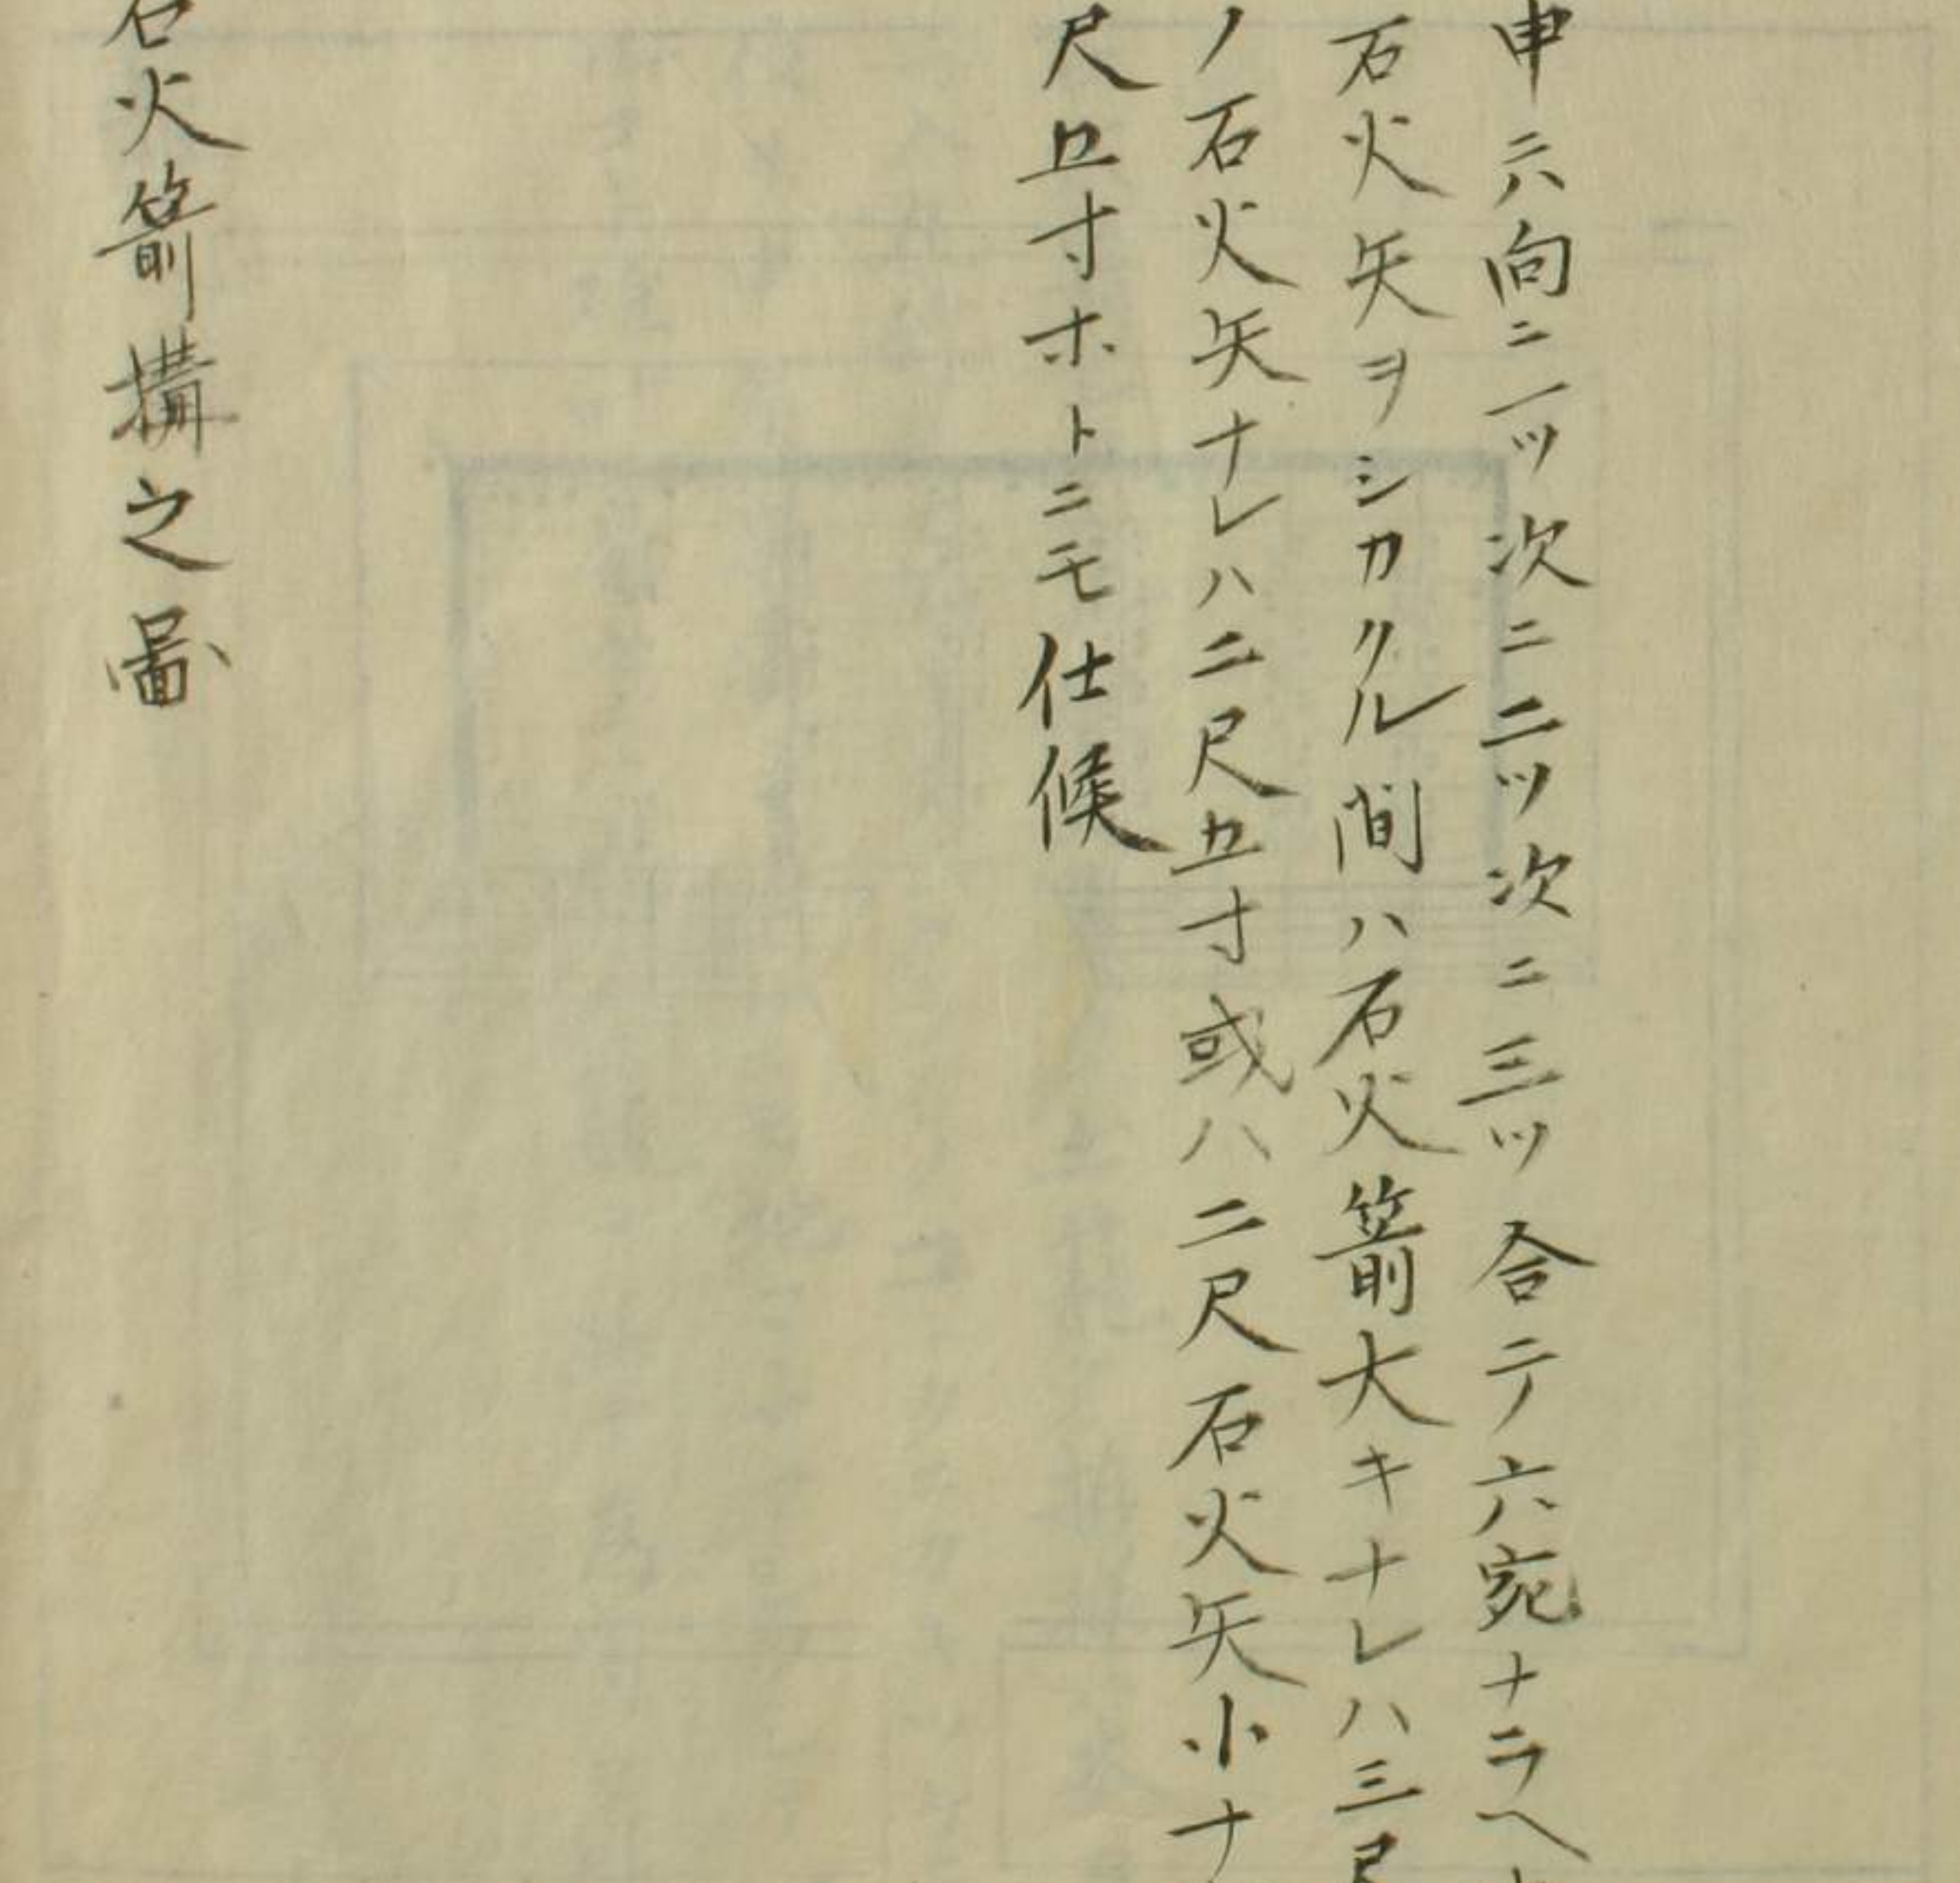 申ニ六向ニ一ツ次ニ二ツ次ニ三ツ合テ六宛ナラヘ
石火矢ヲシカクル間ハ石火箭大キナレハ三尺
ノ石火矢ナレハ二尺五寸或ハ二尺石火矢小ナ
尺五寸ホトニモ仕候
石火箭構之圖